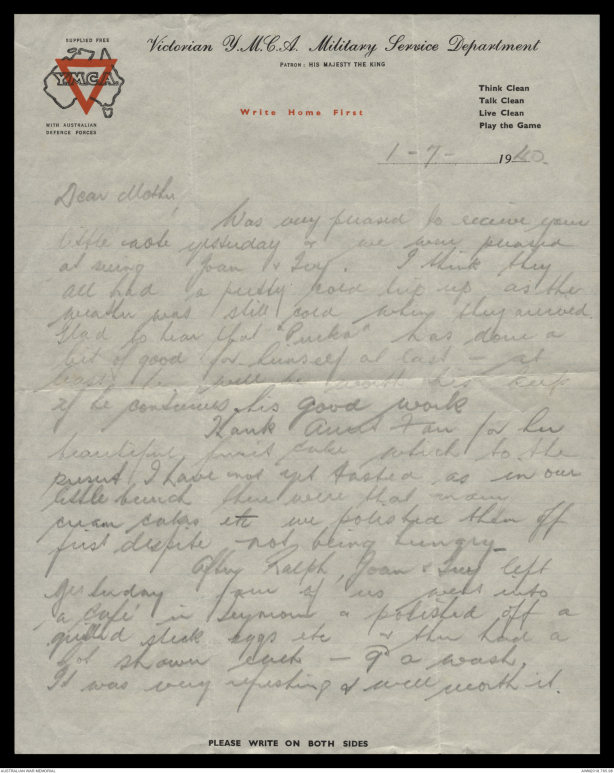 SUPPLIED FREE
Y.M.C.A.
WITH AUSTRALIAN
DEFENCE FORCES
Victorian Y.M.C.A. Military Service Department
PATRON: HIS MAJESTY THE KING
Write Home First
Think Clean
Talk Clean
Live Clean
Play the Game
1 - 7 - 1940.
Dear Mother,
Was very pleased to receive your
little note yesterday & we were pleased
at seeing Joan &. I think they
all had a pretty cold trip up as the
weather was still cold when they arrived.
Glad to hear that "Pucka" has done a
bit of good for himself at last — at
least will be worth his keep
if he continues his good work
Thank Aunt for her
beautiful fruit cake which to the
present, I have not yet tasted as in our
little bunch there were that many
cream cakes etc we polished them off
first despite not being hungry
After Ralph, Joan & left
yesterday four of us went into
a café in Seymour & polished off a
grilled steak eggs etc & then had a
hot shower each — & a wash.
It was very refreshing & well worth it.
PLEASE WRITE ON BOTH SIDES
AUSTRALIAN WAR MEMORIAL